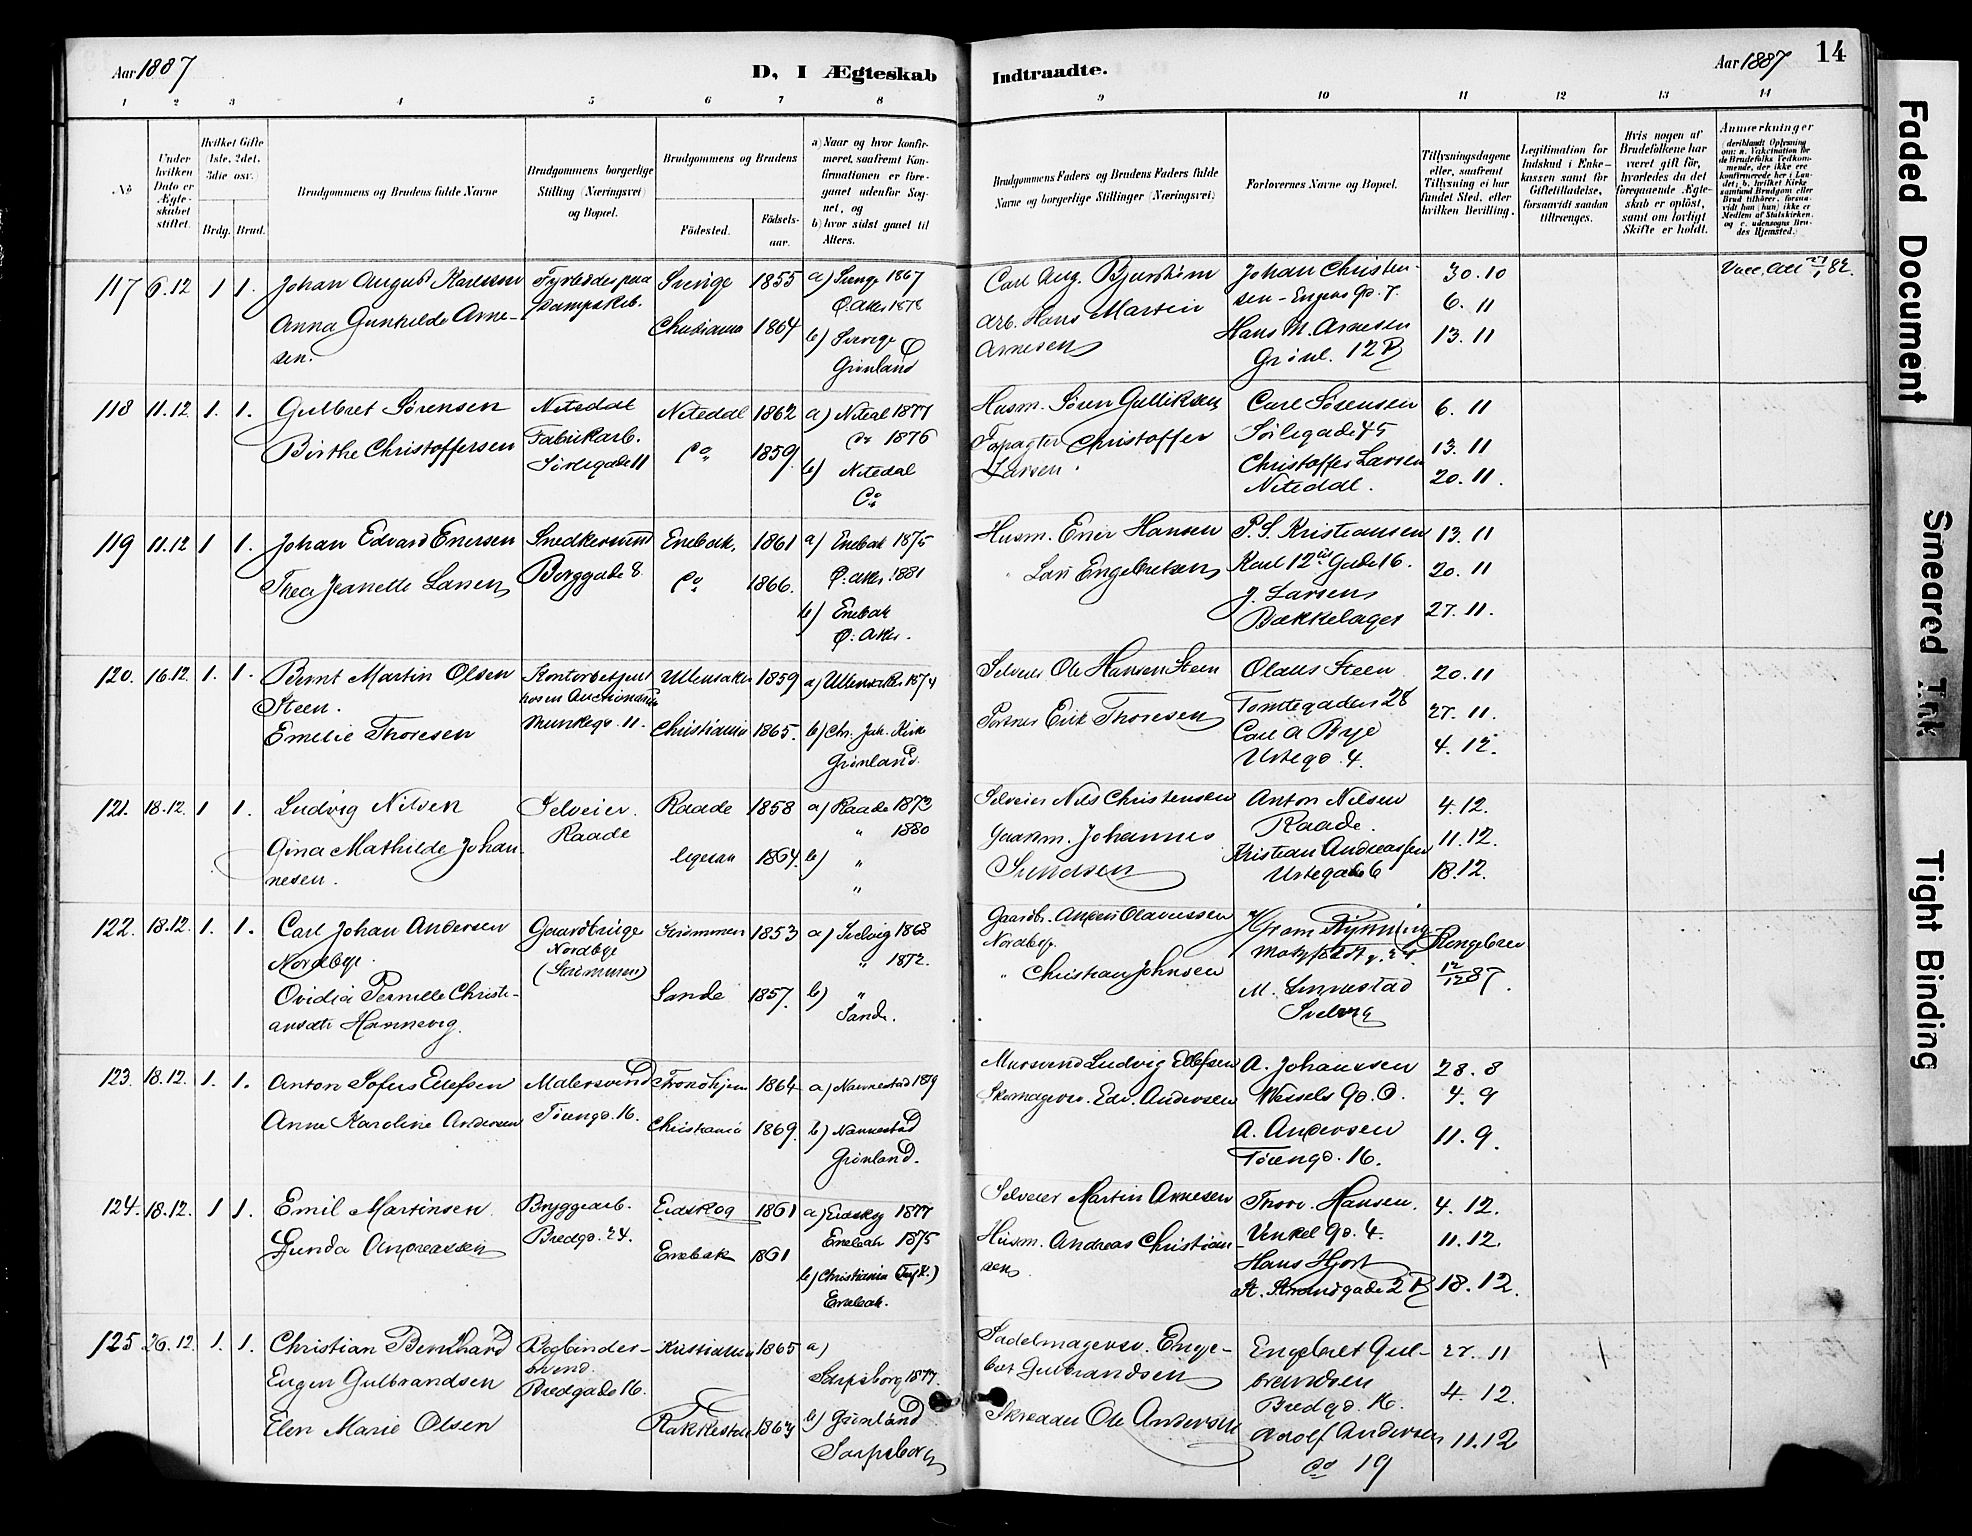 Aar 1887
D, I Ægteskab
Indtraadte.
Aar 1887
14
1 2 3 4 5 6 7 8 9 10 11 12 13 14
No
Under hvilken Dato er Ægteskabet stiftet.
Hvilket Gifte (1ste, 2det, 3die osv.)
Brdg. Brud.
Brudgommens og Brudens fulde Navne
Brudgommens borgerlige Stilling (Næringsvei) og Bopæl.
Brudgommens og Brudens
Fødested.
Fødselsaar.
a) Naar og hvor konfirmeret, saafremt Konfirmationen er foregaaet udenfor Sognet, og
b) hvor sidst gaaet til Alters.
Brudgommens Faders og Brudens Faders fulde Navne og borgerlige Stillinger (Næringsvei)
Forlovernes Navne og Bopæl.
Tillysningsdagene eller, saafremt Tillysning ei har fundet Sted, efter hvilken Bevilling.
Legitimation for Indskud i Enkekassen samt for Giftetilladelse, forsaavidt saadan tiltrænges.
Hvis nogen af Brudefolkene har været gift før, hvorledes da det foregaaende Ægteskab er opløst, samt om lovligt Skifte er holdt.
Anmærkninger
117 6.12 1 1.
Johan August Karlsson
Anna Gunhilde Arnesen.
Fyrbøder paa Dampskib.
Sverige 1855
Christiania 1864
a) Sverige 1867
Ø. Aker 1878
b) Sverige
Grønland
Carl Aug. Bjurstrøm
Arb. Hans Martin Arnesen
Johan Christensen - Engens Gd. 7.
Hans M. Arnesen
Grønl. 12 B
30.10
6.11
13.11
118 11.12 1. 1.
Gulbret Sørensen
Birthe Christoffersen
Nitedal
Fabrikarb.
Sørlegade 11
Nitedal 1862
Do 1859.
a) Nitedal 1877
Do 1876
b) Nitedal
Do
Husm. Søren Gulliksen
Forpagter Christoffer Larsen
Carl Sørensen
Sørlegade 45
Christoffer Larsen
Nitedal.
6.11
13.11
20.11.
119 11.12 1 1.
Johan Edvard Enersen
Thea Jeanette Larsen
Snedkersvend
Borggade 8.
Enebak, 1861
Do 1866.
a) Enebak 1875
Ø. Aker 1881
b) Enebak
Ø. Aker.
Husm. Ener Hansen
" Lars Engebretsen
P. S. Kristiansen
Karl 12te Gade 16.
J. Larsen
Bækkelaget
13.11
20.11
27.11.
120. 16.12 1. 1.
Bernt Martin Olsen
Steen.
Emelie Thoresen
Kontorbetjent
Munkegd. 11.
Ullensaker 1859
Christiania 1865.
a) Ullensaker 1874
b) Chr. Joh. Kirke
Grønland.
Selveier Ole Hansen Steen
Portner Erik Thoresen
Olaus Steen
Tomtegaden 28
Carl A Bye
Urtegd. 4.
20.11
27.11.
4.12.
121. 18.12. 1 1.
Ludvig Nilsen
Gina Mathilde Johannesen.
Selveier.
Raade
Raade 1858
ligesaa 1864.
a) Raade 1873
" 1880
b) "
"
Selveier Nils Christensen
Gaardm. Johannes Svendsen
Anton Nilsen
Raade.
Kristian Andreassen
Urtegade 6
4.12.
11.12.
18.12.
122. 18.12. 1. 1.
Carl Johan Andersen
Nordbye.
Ovidia Pernille Christiansdtr Hannevig.
Gaardbruger
Nordbye
(Strømmen)
Strømmen 1853
Sande 1857.
a) Svelvig 1868
" 1872.
b) "
Sande.
Gaardbr. Anders Olavessen
Nordbye.
" Christian Johnsen
M. Linnestad
Svelvig
Kongebrev
12/12 87.
123. 18.12. 1. 1.
Anton Sofus Ellefsen
Anne Karoline Andersen
Malersvend
Tøiengd. 16.
Trondhjem 1864
Christiania 1869.
a) Nannestad 1879
b) Nannestad
Grønland.
Mursvend Ludvig Ellefsen
Skomagersv. Edv. Andersen
A. Johanssen
Wessels Gd. 9.
A. Andersen
Tøiengd. 16.
28.8
4.9
11.9.
124. 18.12. 1 1.
Emil Martinsen
Gunda Andreassen
Bryggearb.
Bredgd. 24.
Eidskog 1861
Enebak 1861
a) Eidskog 1877
Enebak 1875
b) Christiania
Enebak.
Selveier Martin Arnesen
Husm. Andreas Christiansen
Thorv. Hansen.
Vinkel Gd. 4.
Hans Hjort
St. Strandgade 2 B
4.12.
11.12.
18.12.
125 26.12. 1. 1.
Christian Bernhard
Eugen Gulbrandsen
Elen Marie Olsen
Bogbindersvend.
Bredgade 16.
Kristiania 1865
Rakkestad 1863
a)
Sarpsborg 1877.
b) Grønland
Sarpsborg
Sadelmagersv. Engebret Gulbrandsen
Skrædder Ole Andersen
Engebret Gulbrandsen
Bredgd. 16.
Adolf Andersen
do 19
27.11
4.12.
11.12
Faded Document
Smeared Ink
Tight Binding